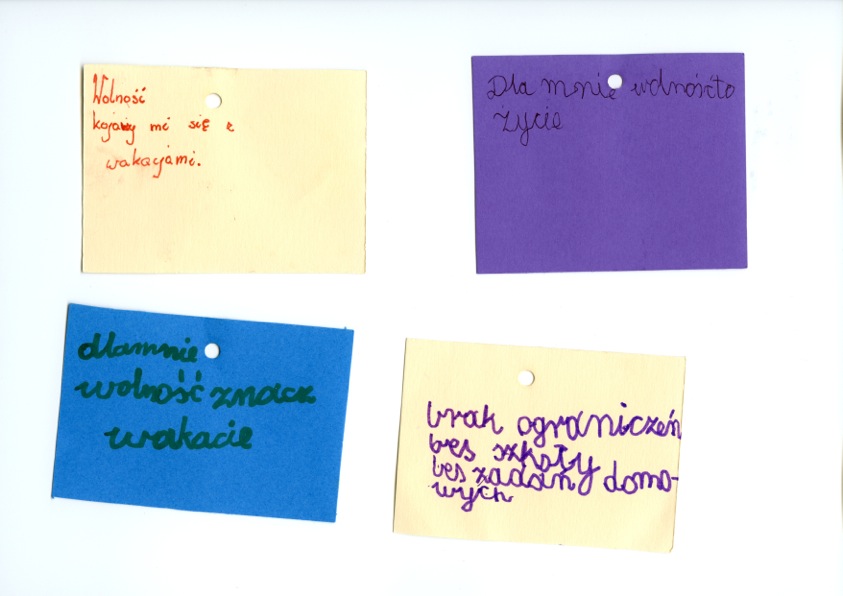 Wolność
kojarzy mi się z
wakacjami.
Dla mnie wolność to
życie
dlamnie
wolność znacz
wakacie
brak ograniczeń
bes szkoły
bes zadań domo-
wych